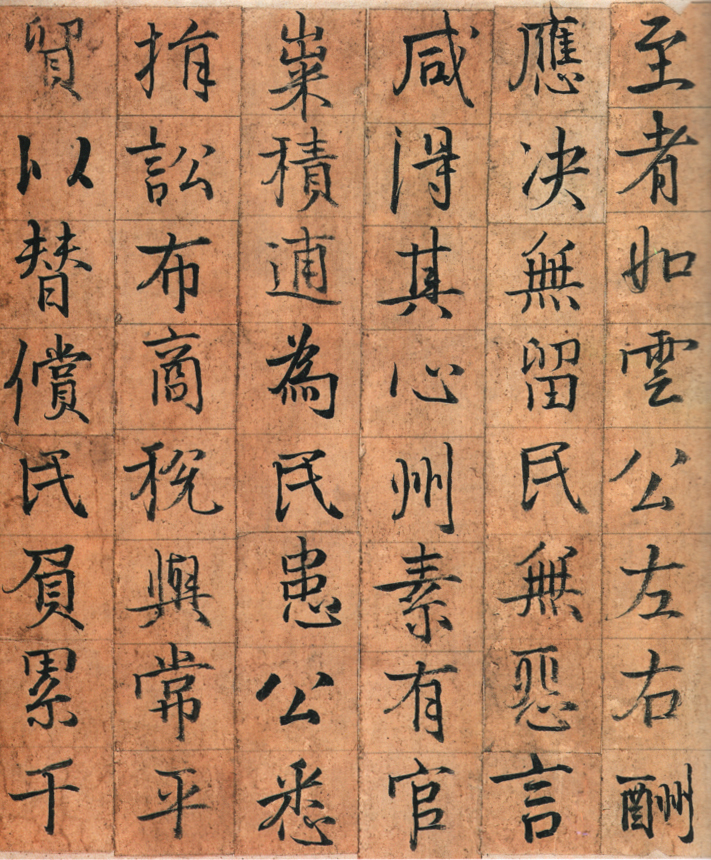 至者如雲公左右酬
應决無留民無惡言
咸得其心州素有官
粟積逋為民患公悉
捐訟布商税與常平
貿以替償民負累千